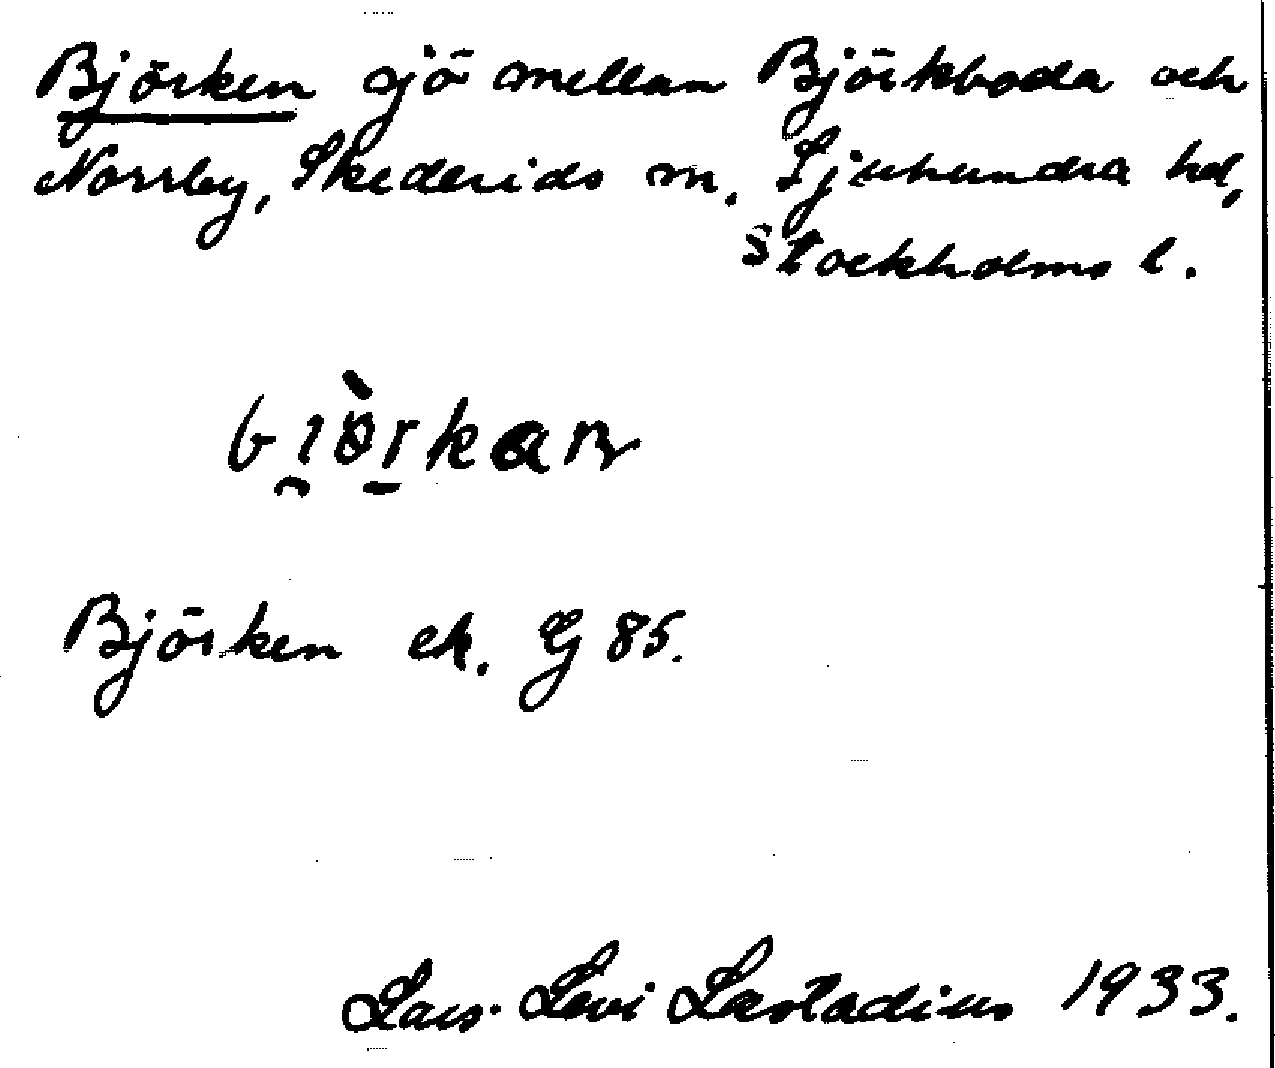 Björken sjö mellan Björkboda och
Norrby, Skederids sn. Sjuhundra hd,
Stockholms l.
bi̯ö̀r̠kan
Björken ek. G 85.
Lars-Levi Læstadius 1933.